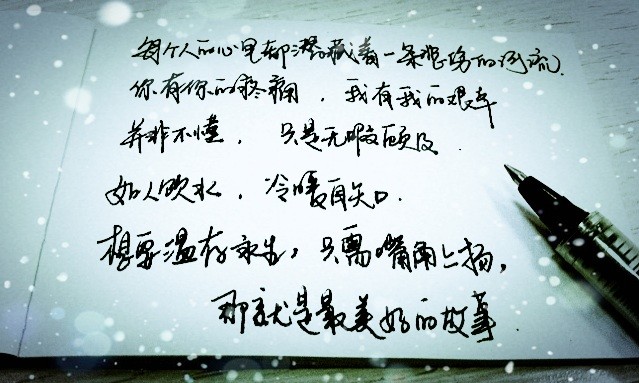 每个人的心里都潜藏着一条悲伤的河流.
你有你的疼痛，我有我的艰辛
并非不懂，只是无暇顾及.
如人饮水，冷暖自知.
想要温存永生，只需嘴角上扬，
那就是最美好的故事